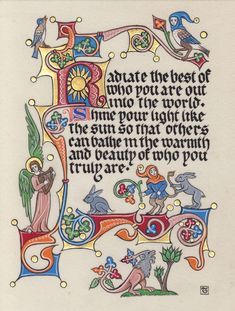 Radiate the best of
who you are out
into the world.
Shine your light like
the sun so that others
can bathe in the warmth
and beauty of who you
truly are.